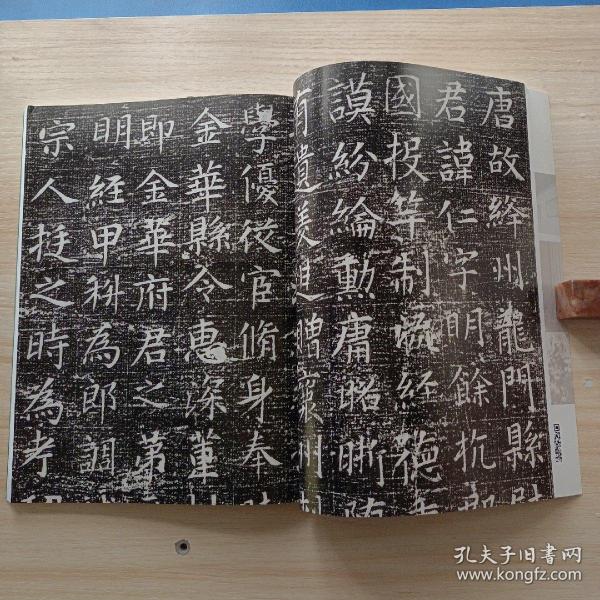 唐故絳州龍門縣尉
君諱仁字明餘杭
國投竿制嚴經德
謨紛綸勳庸昭晰
有遺羡追贈襄州刺
學優從宦脩身奉
金華縣令惠深董
即金華府君之第
明經甲科為郎調
宗人挺之時為考
孔夫子旧书网
www.kongfz.com